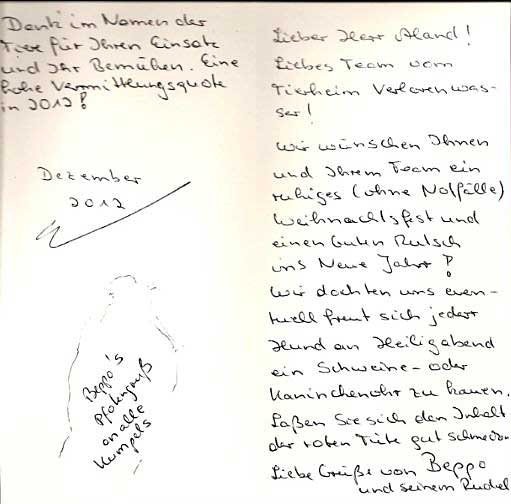 Dank im Namen der
Tiere für Ihren Einsatz
und Ihr Bemühen. Eine
hohe Vermittlungsquote
in 2012!
Dezember
2012
Beppo's
Pfotengruß
an alle
Kumpels
Lieber Herr Aland!
Liebes Team vom
Tierheim Verlorenwas-
ser!
Wir wünschen Ihnen
und Ihrem Team ein
ruhiges (ohne Notfälle)
Weihnachtsfest und
einen Guten Rutsch
ins Neue Jahr!
Wir dachten uns even-
tuell freut sich jeder
Hund an Heiligabend
ein Schweine- oder
Kaninchenohr zu kauen.
Laßen Sie sich den Inhalt
der roten Tüte gut schmecken.
Liebe Grüße von Beppo
und seinem Rudel